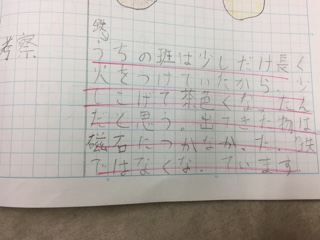 考察
うちの班は少しだけ長く
火をつけていたから、少
しこげて茶色くなったん
だと思う。出てきた物は
磁石につかなかった。鉄
ではなくなっています